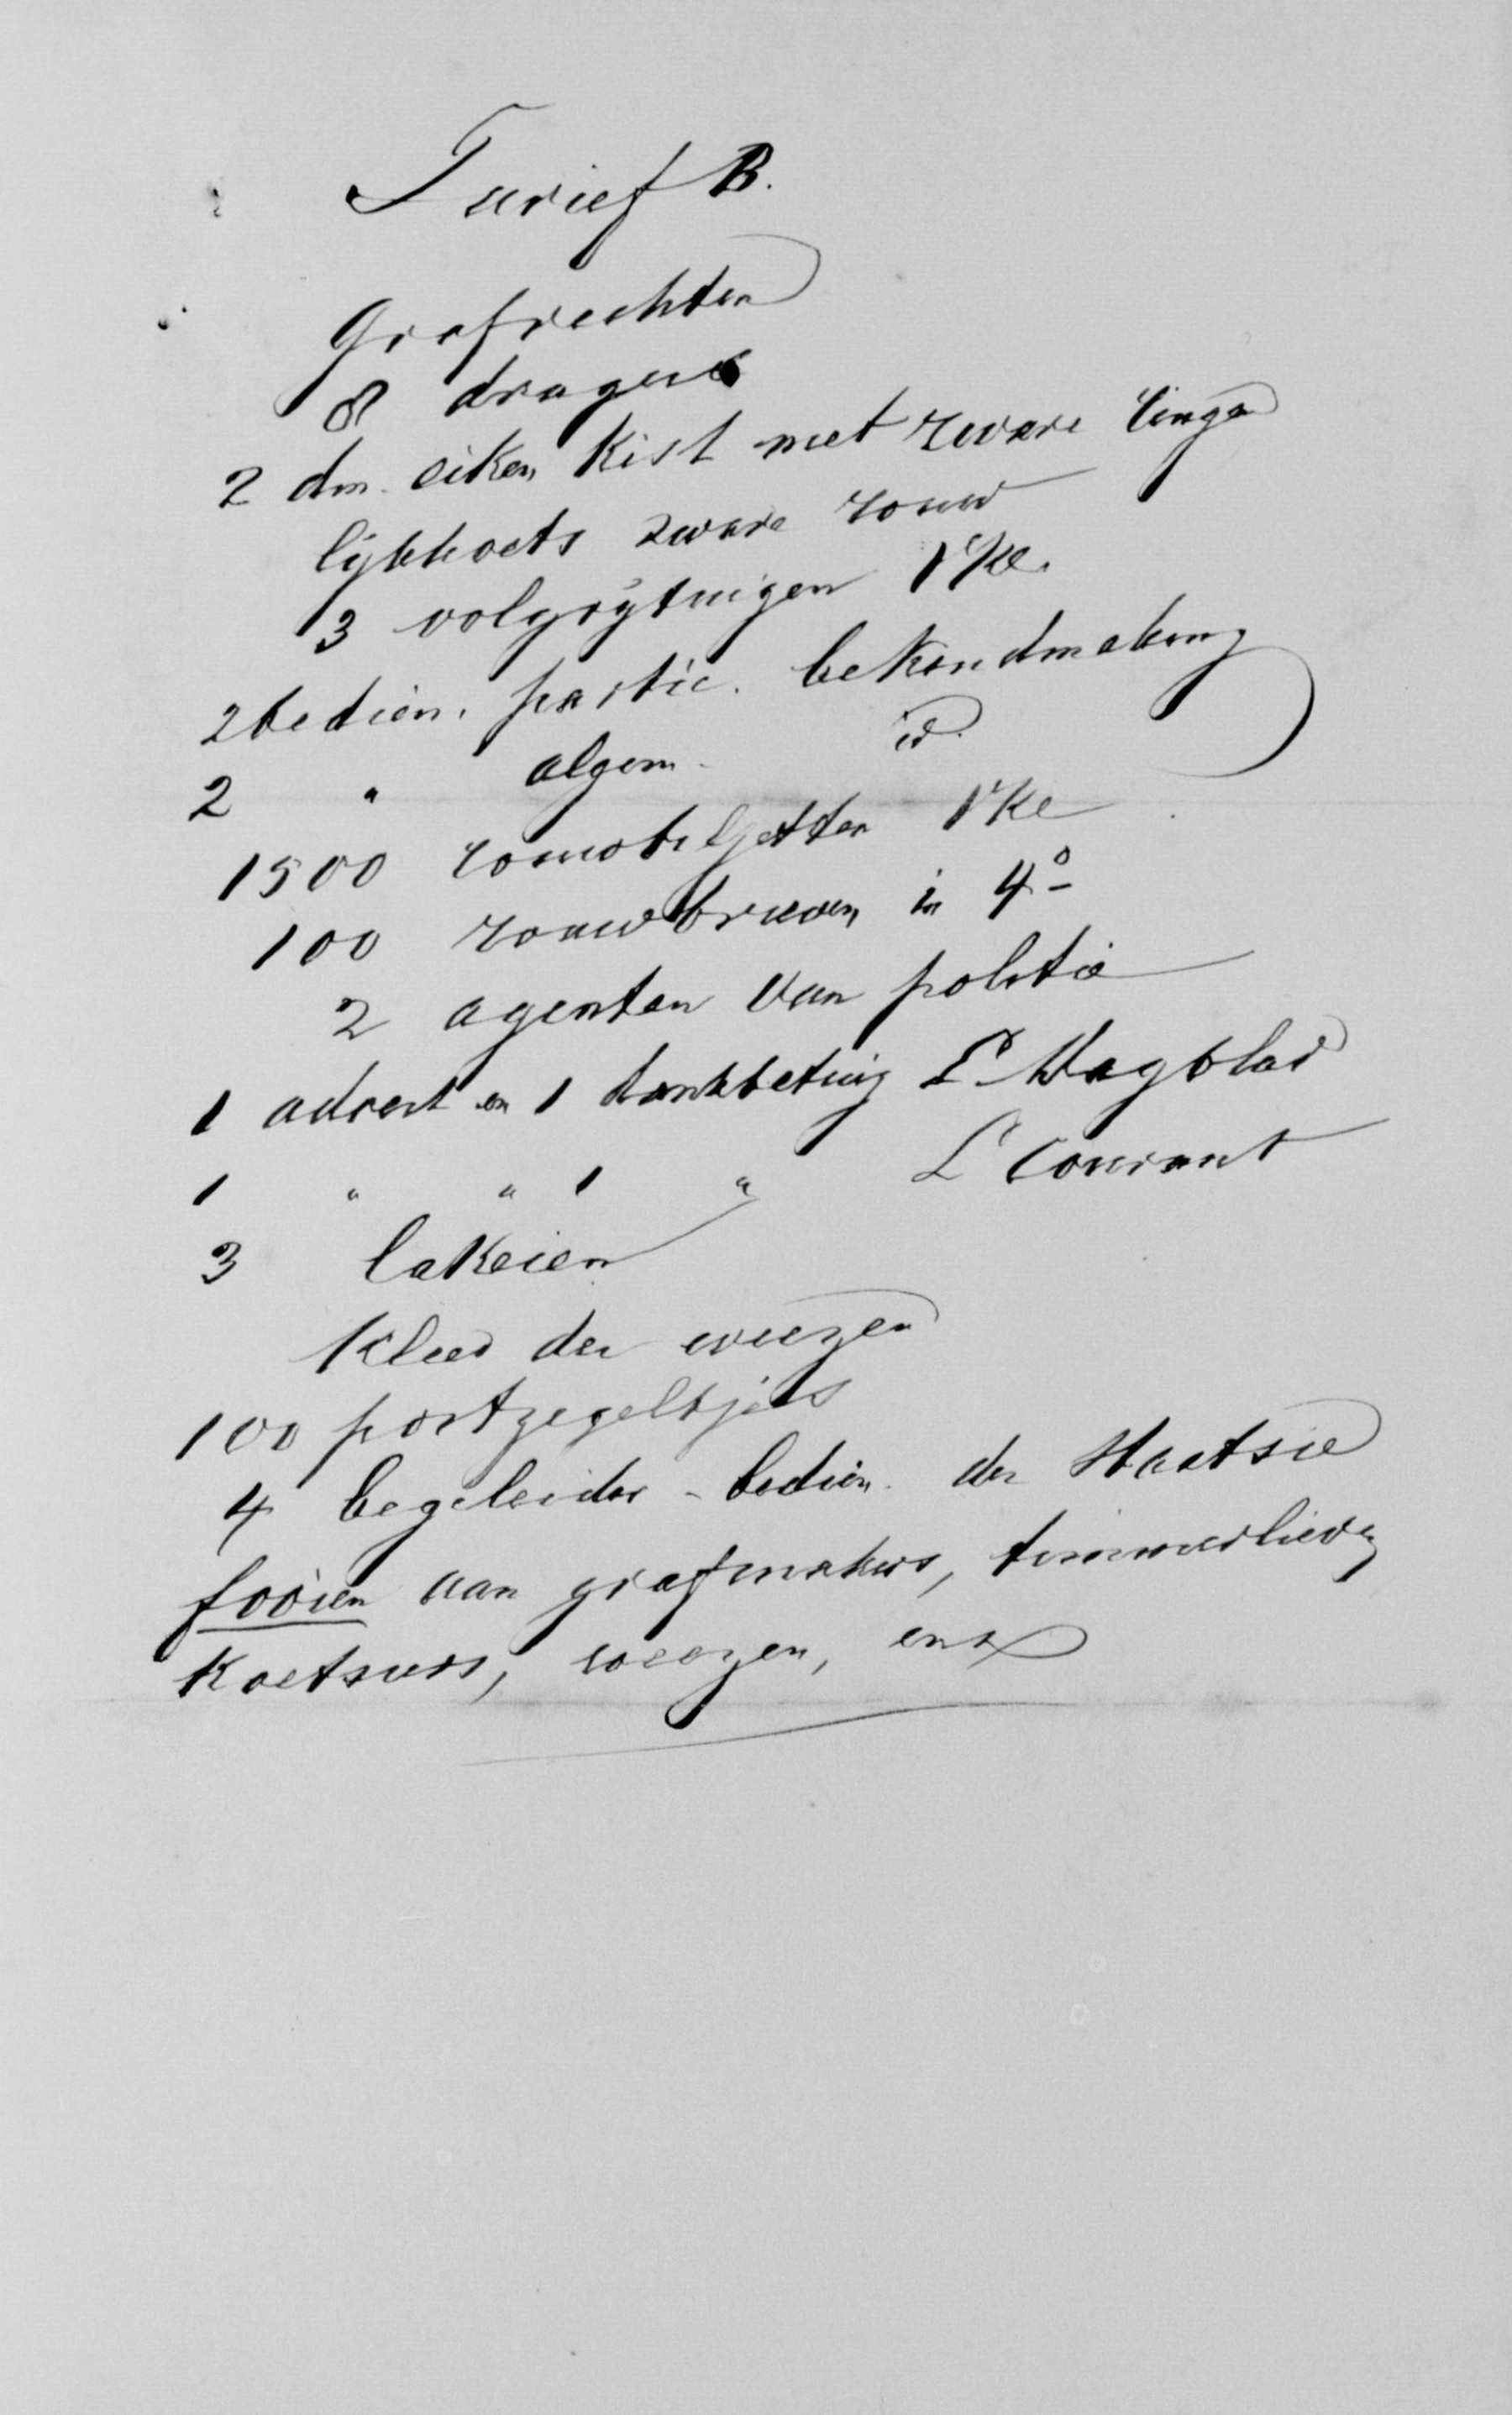 Tarief B.
Grafrechten
8 dragers
2 dm. eiken Kist met zware ringen
lijkkoets zware rouw
3 volgrijtuigen 1e Kl.
2 bedien. partic. bekendmaking
2 " algem. id.
1500 rouwbiljetten 1e Kl
100 rouwbrieven in 4o
2 agenten van politie
1 advert en 1 dankbetuig L. Dagblad
1 " " 1 " L Courant
3 lakeien
Kleed der weezen
100 postzegeltjes
4 begeleider-bedien. der Staatsie
fooien aan grafmakers, timmerlieden
Koetsiers, weezen, enz